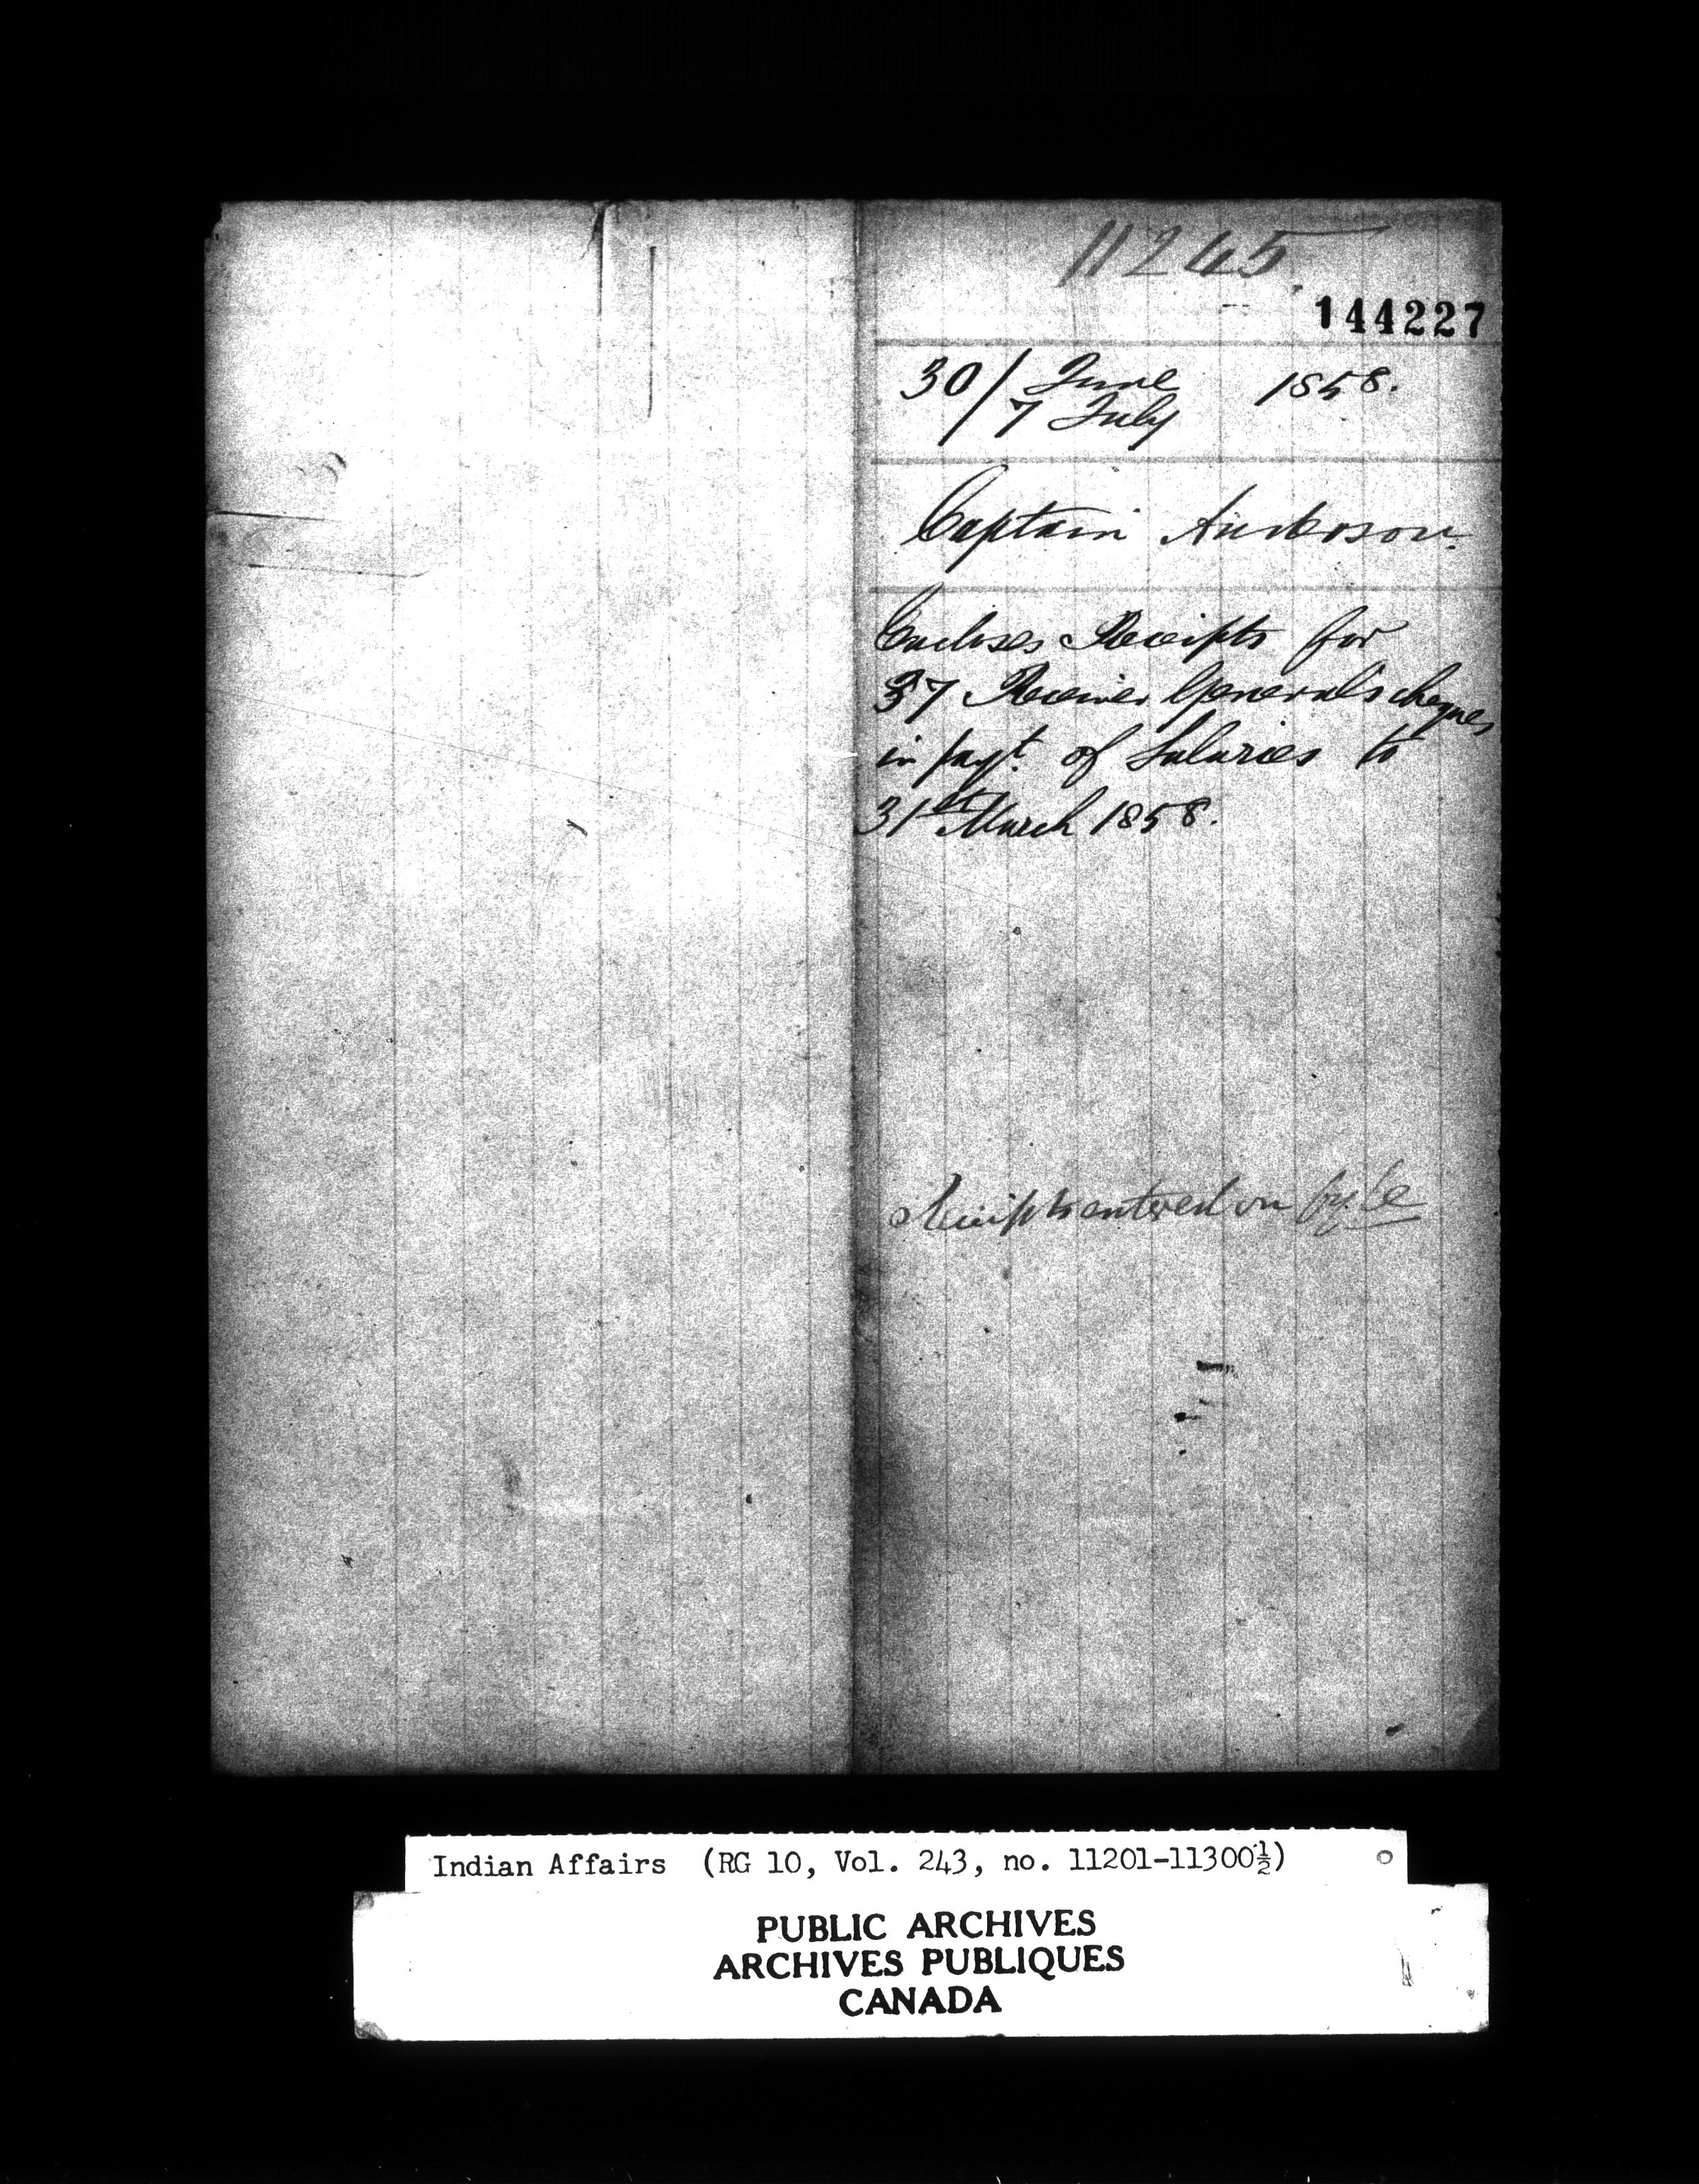 11245
144227
30/ June 1858.
7 July
Captain Anderson.
Encloses Receipts for
37 Receiver Generals cheques
in payt. of Salaries to
31st March 1858.
Receipts entered on
Indian Affairs (RG 10, Vol. 243, no. 11201-11300½)
PUBLIC ARCHIVES
ARCHIVES PUBLIQUES
CANADA